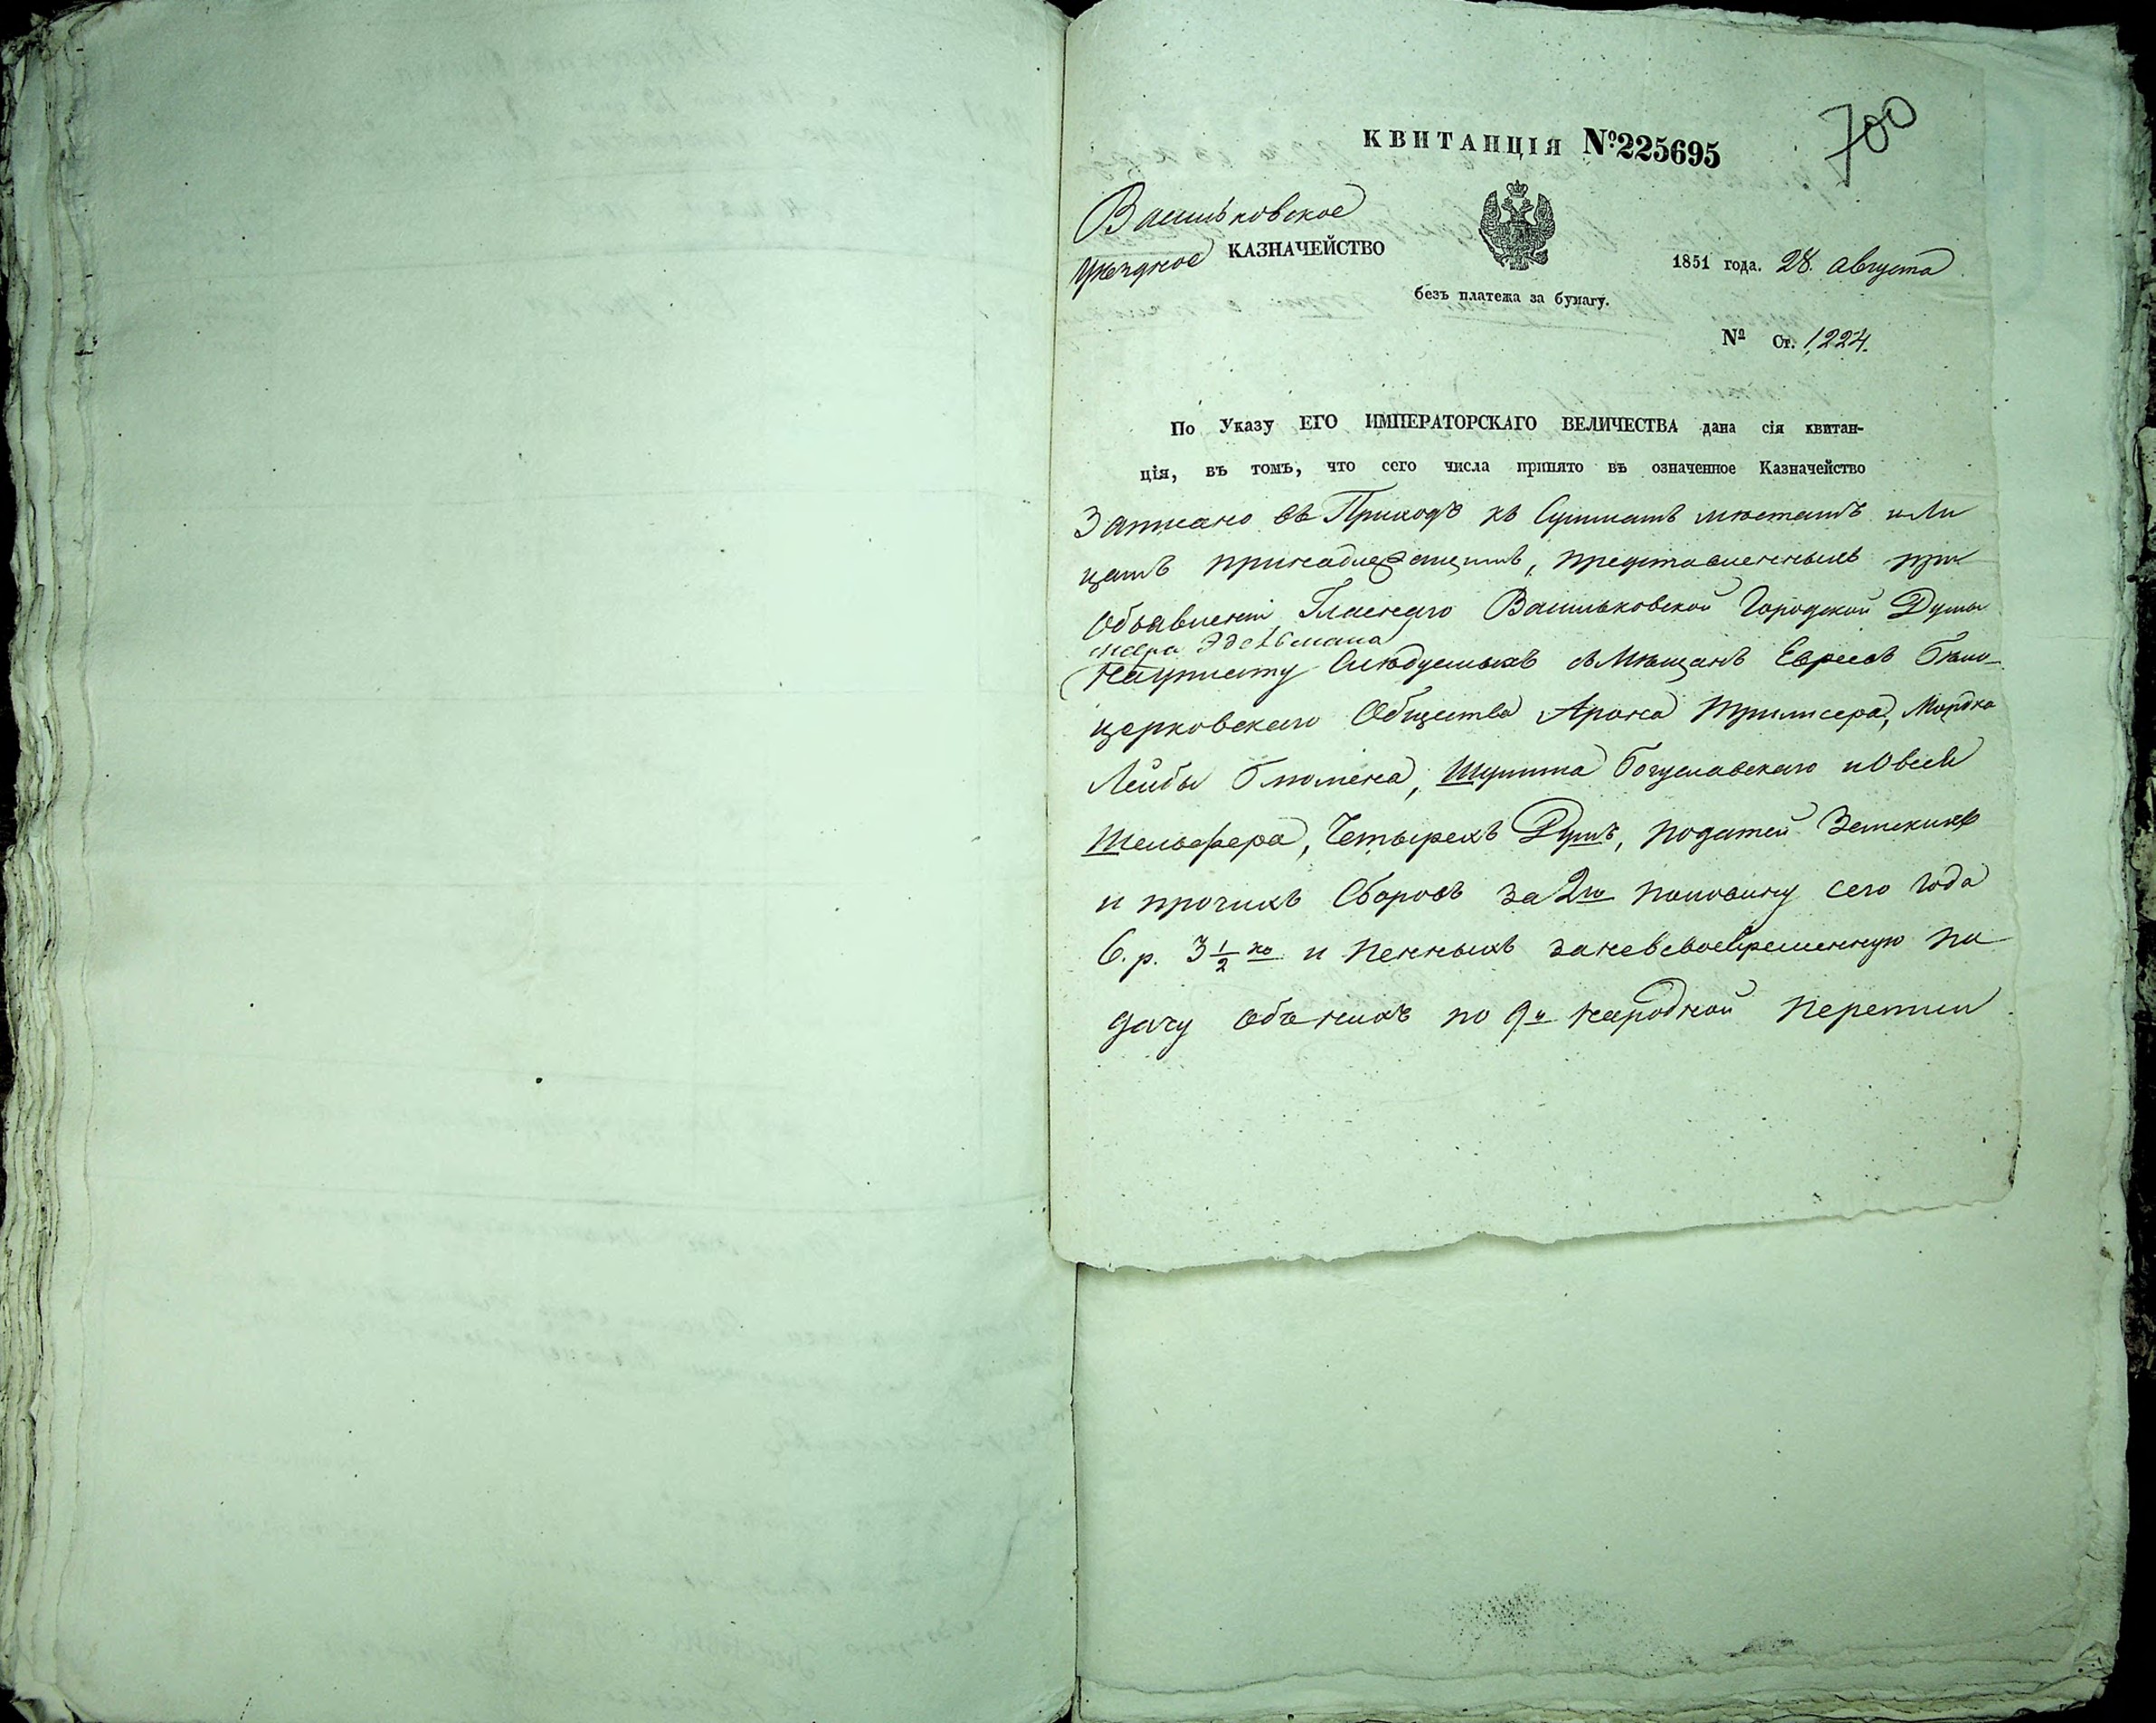 КВИТАНЦІЯ №225695
700
Васильковское
уѣздное КАЗНАЧЕЙСТВО
1851 года. 28. августа
безъ платежа за бумагу.
№ Ст. 1,224.
По Указу ЕГО ИМПЕРАТОРСКАГО ВЕЛИЧЕСТВА дана сія квитан-
ція, въ томъ, что сего числа принято въ означенное Казначейство
Записано въ Приходъ къ Суммамъ мѣстамъ и Ли
цамъ принадлежащимъ, представленныхъ при
Объявленіи Гласнаго Васильковской Городской Думы
Эдельмана
Науплату Слѣдуемыхъ съ Мѣщанъ Евреевъ Бѣло-
церковскаго Общества Арона Тримсера, Мордка
Лейбы Блюмена, Шулима Богуславскаго и Овсея
Шельвфера, Четырехъ Душъ, податей Земскихъ
и прочихъ Сборовъ за 2ю половину сего года
6. р. 3 1/2 ко и пенныхъ заневсвоевременную по
дачу объ нихъ по 9й народной перепи